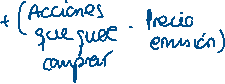 + (Acciones que quiere comprar · Precio emisión)